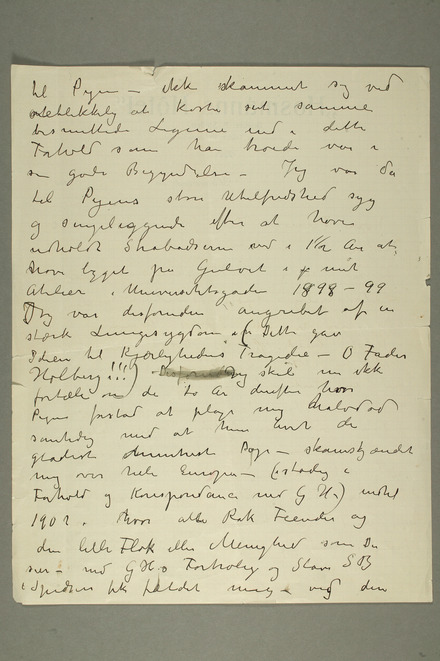 til Pigen – ikke skammet sig ved
øieblikkelig at kaste sit samme
besmittede Legeme ind i dette
Forhold som han troede var i
sin gode Begyndelse – Jeg var da
til Pigens store Utilfredshed syg
og sengeliggende efter at have
udholdt Strabadserne ved i 1½ Aar at
have ligget på Gulvet i mit
Atelier i Universitetsgaden 1898–99
Jeg var desforuden angrebet af en
stærk Lungesygdom (Dette gav
Ideen til Kjærlighedens Tragedie – O Fader
Holberg!!!) Jeg skal nu ikke
fortælle om de to Aar derefter hvor
Pigen fortsat at plage mig halvdød
samtidig med at hun levet de
gladeste Dage – skamskjændet
mig over hele Europa – (stadig i
Forhold og Korrespondance med G H) indtil
1902. hvor alle Rak Fiender og
den lille Flok eller Menighed som Du
ser – med G H's Forhold og Slave S B
i Spidsen fik fældet mig – ved den